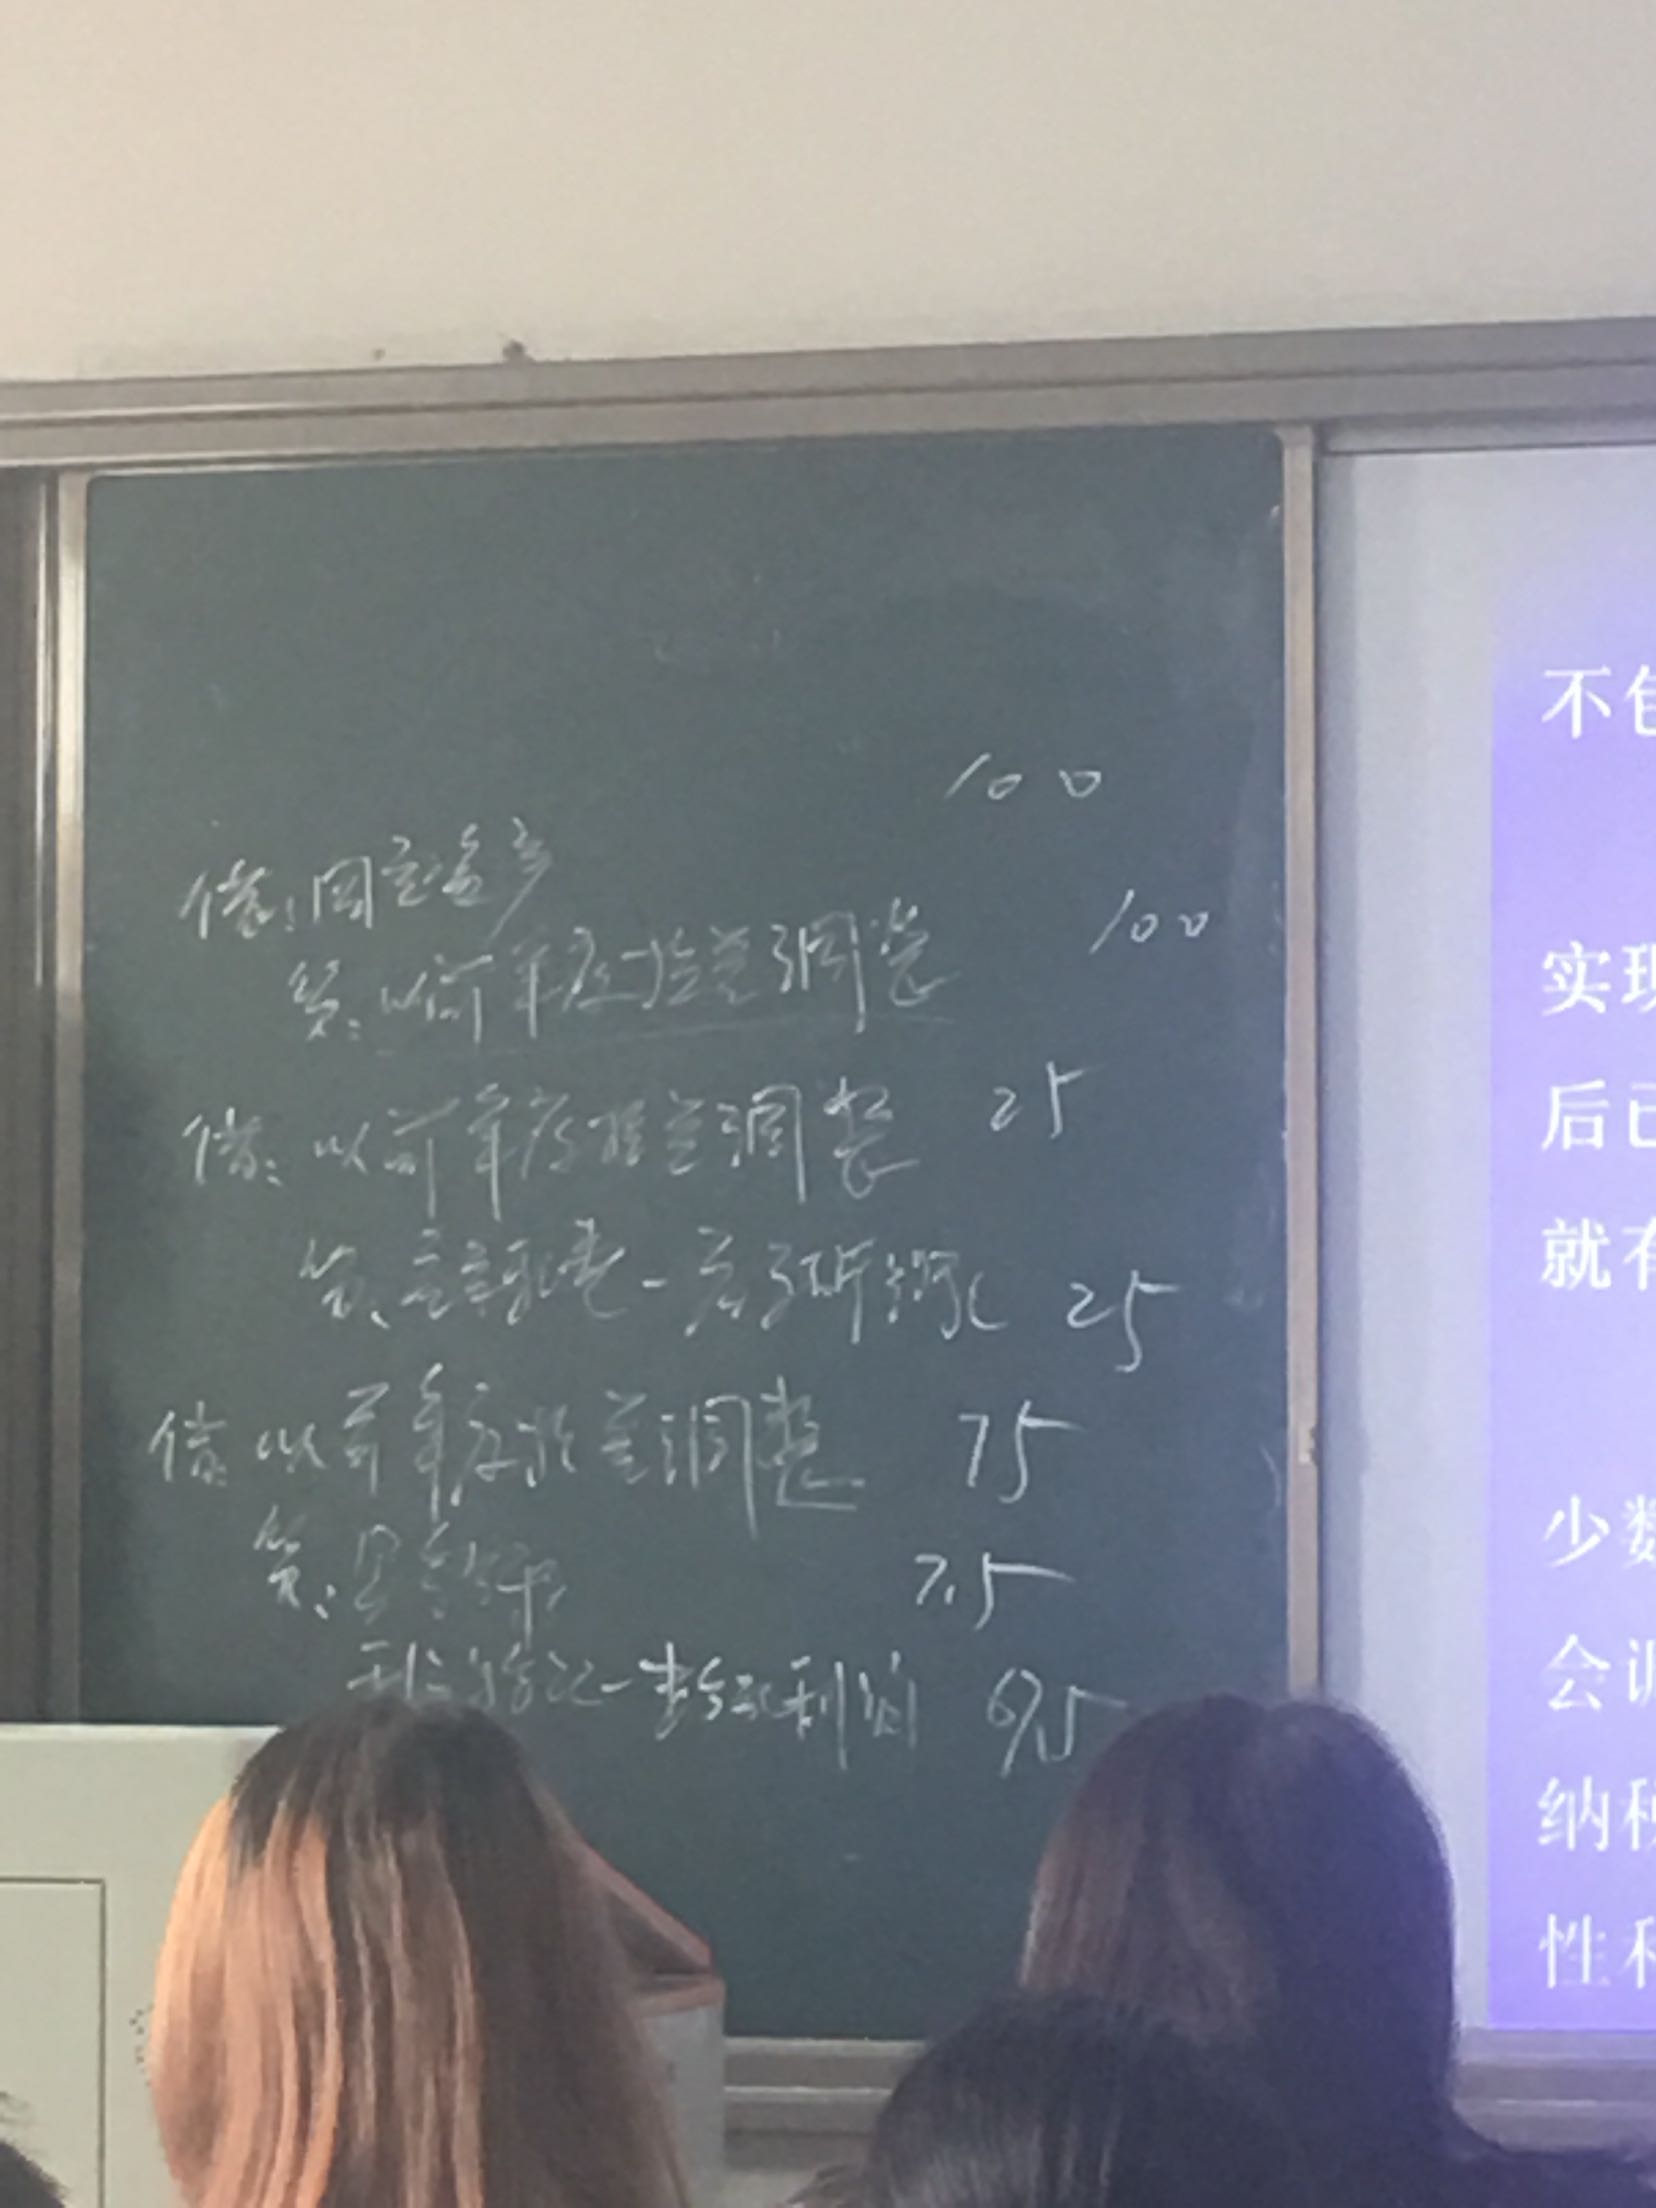 借：固定资产 100
贷：以前年度损益调整 100
借：以前年度损益调整 25
贷：应交税费－应交所得税 25
借：以前年度损益调整 75
贷：盈余公积 7.5
利润分配－未分配利润 67.5
不包
实现
后已
就有
少数
会调
纳税
性